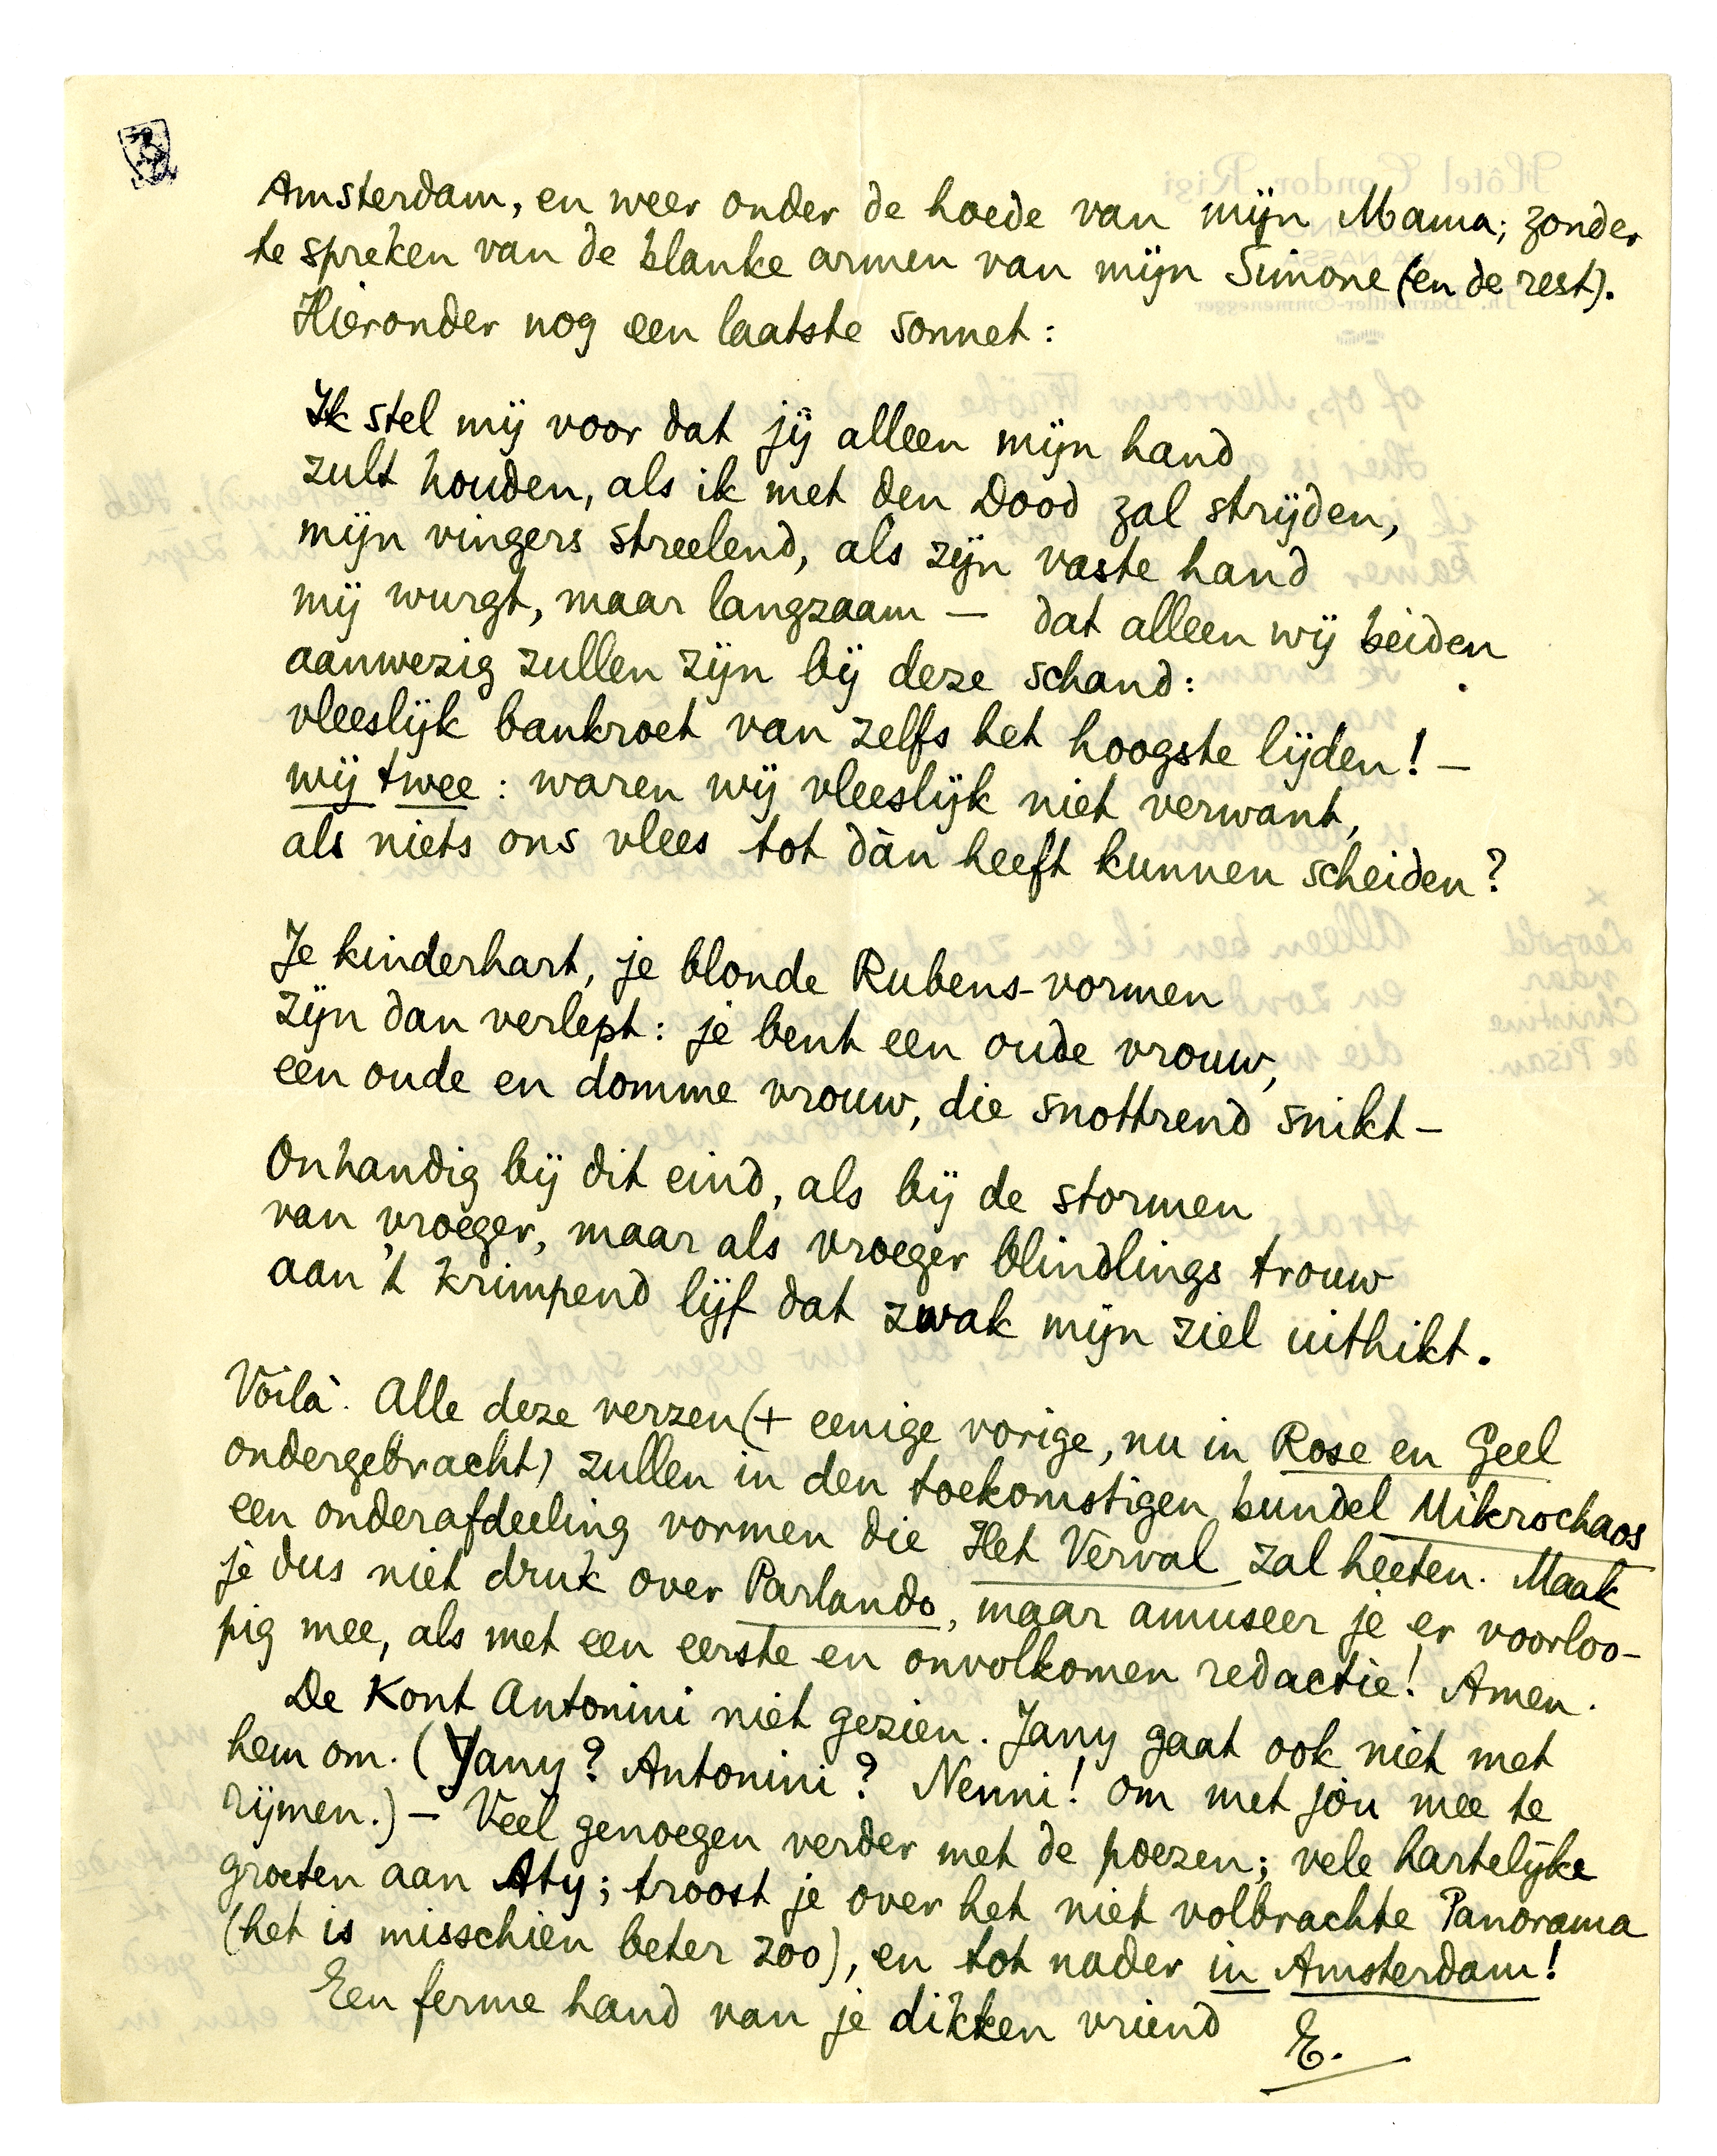 Amsterdam, en weer onder de hoede van mijn Mama; zonder
te spreken van de blanke armen van mijn Simone (en de rest).
Hieronder nog een laatste sonnet:
Ik stel mij voor dat jij alleen mijn hand
zult houden, als ik met den Dood zal strijden,
mijn vingers streelend, als zijn vaste hand
mij wurgt, maar langzaam — dat alleen wij beiden
aanwezig zullen zijn bij deze schand:
vleeslijk bankroet van zelfs het hoogste lijden! —
wij twee: waren wij vleeslijk niet verwant,
als niets ons vlees tot dàn heeft kunnen scheiden?
Je kinderhart, je blonde Rubens-vormen
zijn dan verlept: je bent een oude vrouw,
een oude en domme vrouw, die snottrend snikt —
Onhandig bij dit eind, als bij de stormen
van vroeger, maar als vroeger blindlings trouw
aan 't krimpend lijf dat zwak mijn ziel uithikt.
Voilà. Alle deze verzen (+ eenige vorige, nu in Rose en Geel
ondergebracht) zullen in den toekomstigen bundel Mikrochaos
een onderafdeeling vormen die Het Verval zal heeten. Maak
je dus niet druk over Parlando, maar amuseer je er voorloo-
pig mee, als met een eerste en onvolkomen redactie! Amen.
De Kont Antonini niet gezien. Jany gaat ook niet met
hem om. (Jany? Antonini? Nenni! om met jòu mee te
rijmen.) — Veel genoegen verder met de poezen; vele hartelijke
groeten aan Aty; troost je over het niet volbrachte Panorama
(het is misschien beter zoo), en tot nader in Amsterdam!
Een ferme hand van je dikken vriend
E.